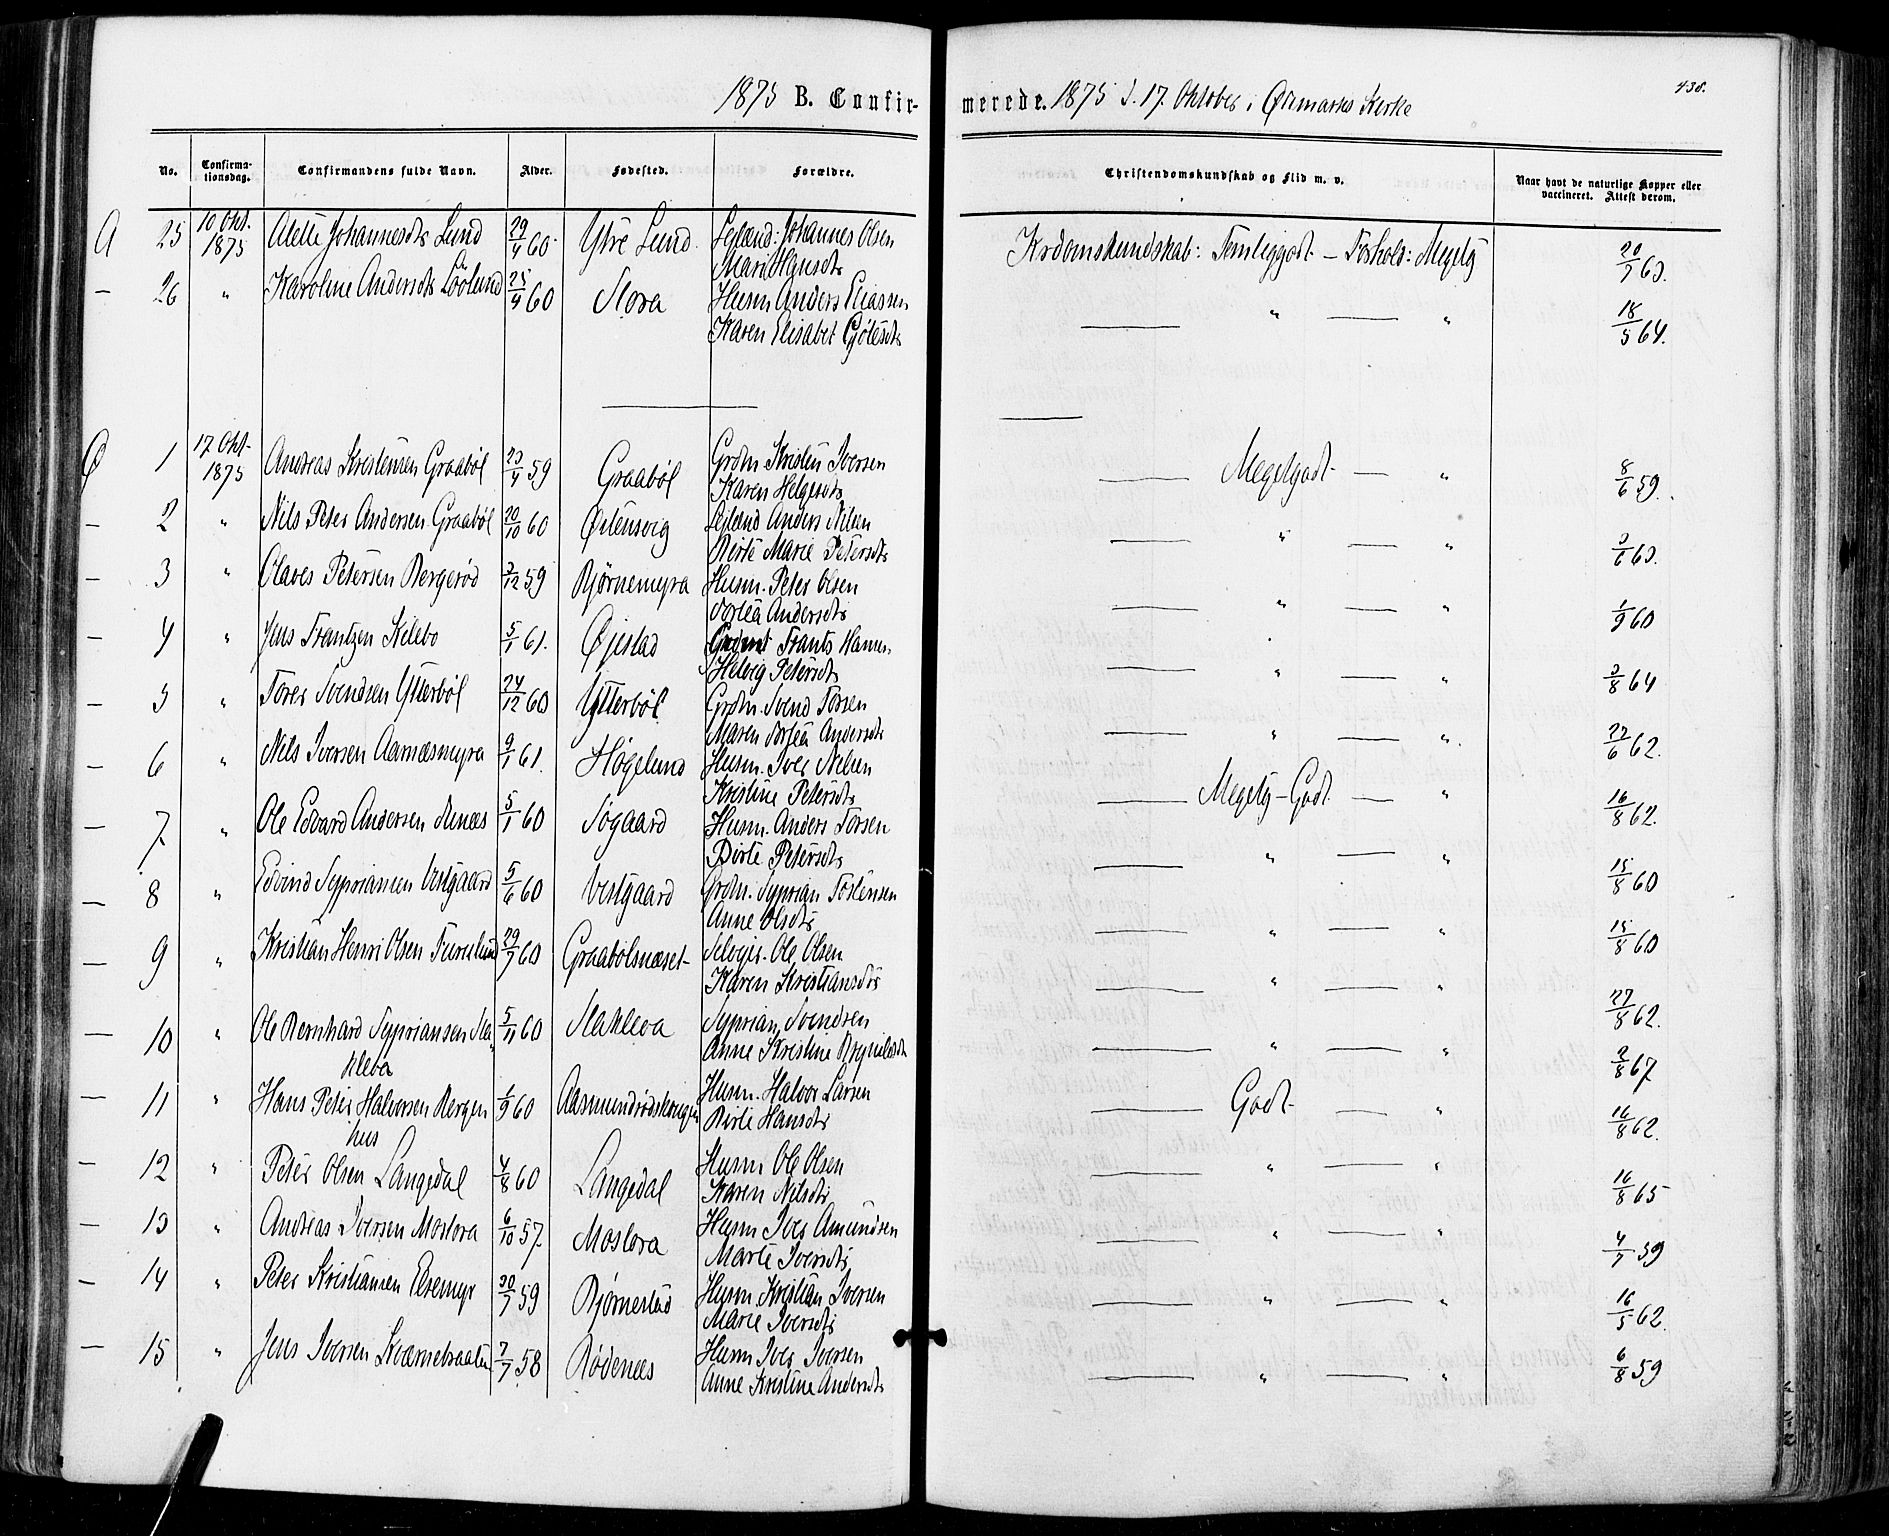 1875 B. Confir-
merede. 1875 d. 17. Oktober i Ørmarks Kirke
438.
No. Confirma-tionsdag. Confirmandens fulde Navn. Alder. Fødested. Forældre. Christendomskundskab og Flid m. v. Naar havt de naturlige Kopper eller vaccineret. Attest derom.
A 25 10 Okt. 1875 Alette Johannesdtr Lund 29/4 60 Ytre Lund Lejlænd: Johannes Olsen
Mari Hansdtr Krdomskundskab: Temliggodt — Forhold: Megetg 20/7 63.
— 26 " Karoline Andersdtr Löslund 25/4 60 Slora Husm Anders Eliassen " — " 18/5 64.
Karen Elisabet
Ø 1 17 Okt. 1875 Andreas Kristensen Graabøl 23/4 59 Graabøl Grdm. Kristen Iversen
Karen Helgesdtr — Megetgodt — " 8/6 59.
— 2 " Nils Peter Andersen Graabøl 20/10 60 Østensvig Lejlænd Anders Nilsen
Birte Marie Petersdtr — " — " 3/6 63.
— 3 " Olaves Petersen Bergerød 3/12 59 Bjørnemyra Husm. Peter Olsen
Dortea Andersdtr — " — " 1/9 60
— 4 " Jens Frantzen Kilebo 5/1 61. Øjestad Frants Hansen
Helvig Petersdtr — " — " 3/8 64
— 5 " Torer Svendsen Ytterbøl 24/12 60 Ytterbøl Grdm. Svend Torsen
Maren Dortea Andersdtr — " — " 22/6 62.
— 6 " Nils Iversen Aarnæsmyra 9/1 61. Høgelund Husm. Iver Nilsen
Kristine Petersdtr — Megetg – Godt — " 16/8 62.
— 7. " Ole Edvard Andersen 5/1 60 Søgaard Husm. Anders Torsen
Birte Petersdtr — " — " 15/8 60
— 8 " Edvind Sypriansen Vestgaard 5/6 60 Vestgaard Grdm. Syprian Torstensen
Anne Olsdtr — " — " 15/8 60
— 9 " Kristian Henri Olsen Furulund 29/7 60 Graabølsnæset Selvejer. Ole Olsen
Karen Kristiansdtr — " — " 27/8 62.
— 10 " Ole Bernhard Syprianssen Stakleva 5/11 60 Stakleva Syprian Svendsen
Anne Kristine — " — " 2/8 67
— 11 " Hans Peter Halvorsen Bergenhus 1/9 60 Aasmundrødskougen Husm. Halvor Larsen
Birte Hansdtr — Godt — " 16/8 62.
— 12 " Peter Olsen Langedal 4/8 60 Langedal Husm Ole Olsen
Karen Nilsdtr — " — " 16/8 65
— 13 " Andreas Iversen Moslora 6/10 57. Moslora Husm Iver Amundsen
Marte Iversdtr — " — " 4/7 59
— 14 " Peter Kristiansen 30/7 59 Bjørnestad Husm Kristian Iversen
Marie Iversdtr — " — " 16/5 62.
— 15 " Jens Iversen Kværnebraaten 7/7 58 Rødenæs Husm Iver Iversen
Anne Kristine Andersdtr — " — " 6/8 59